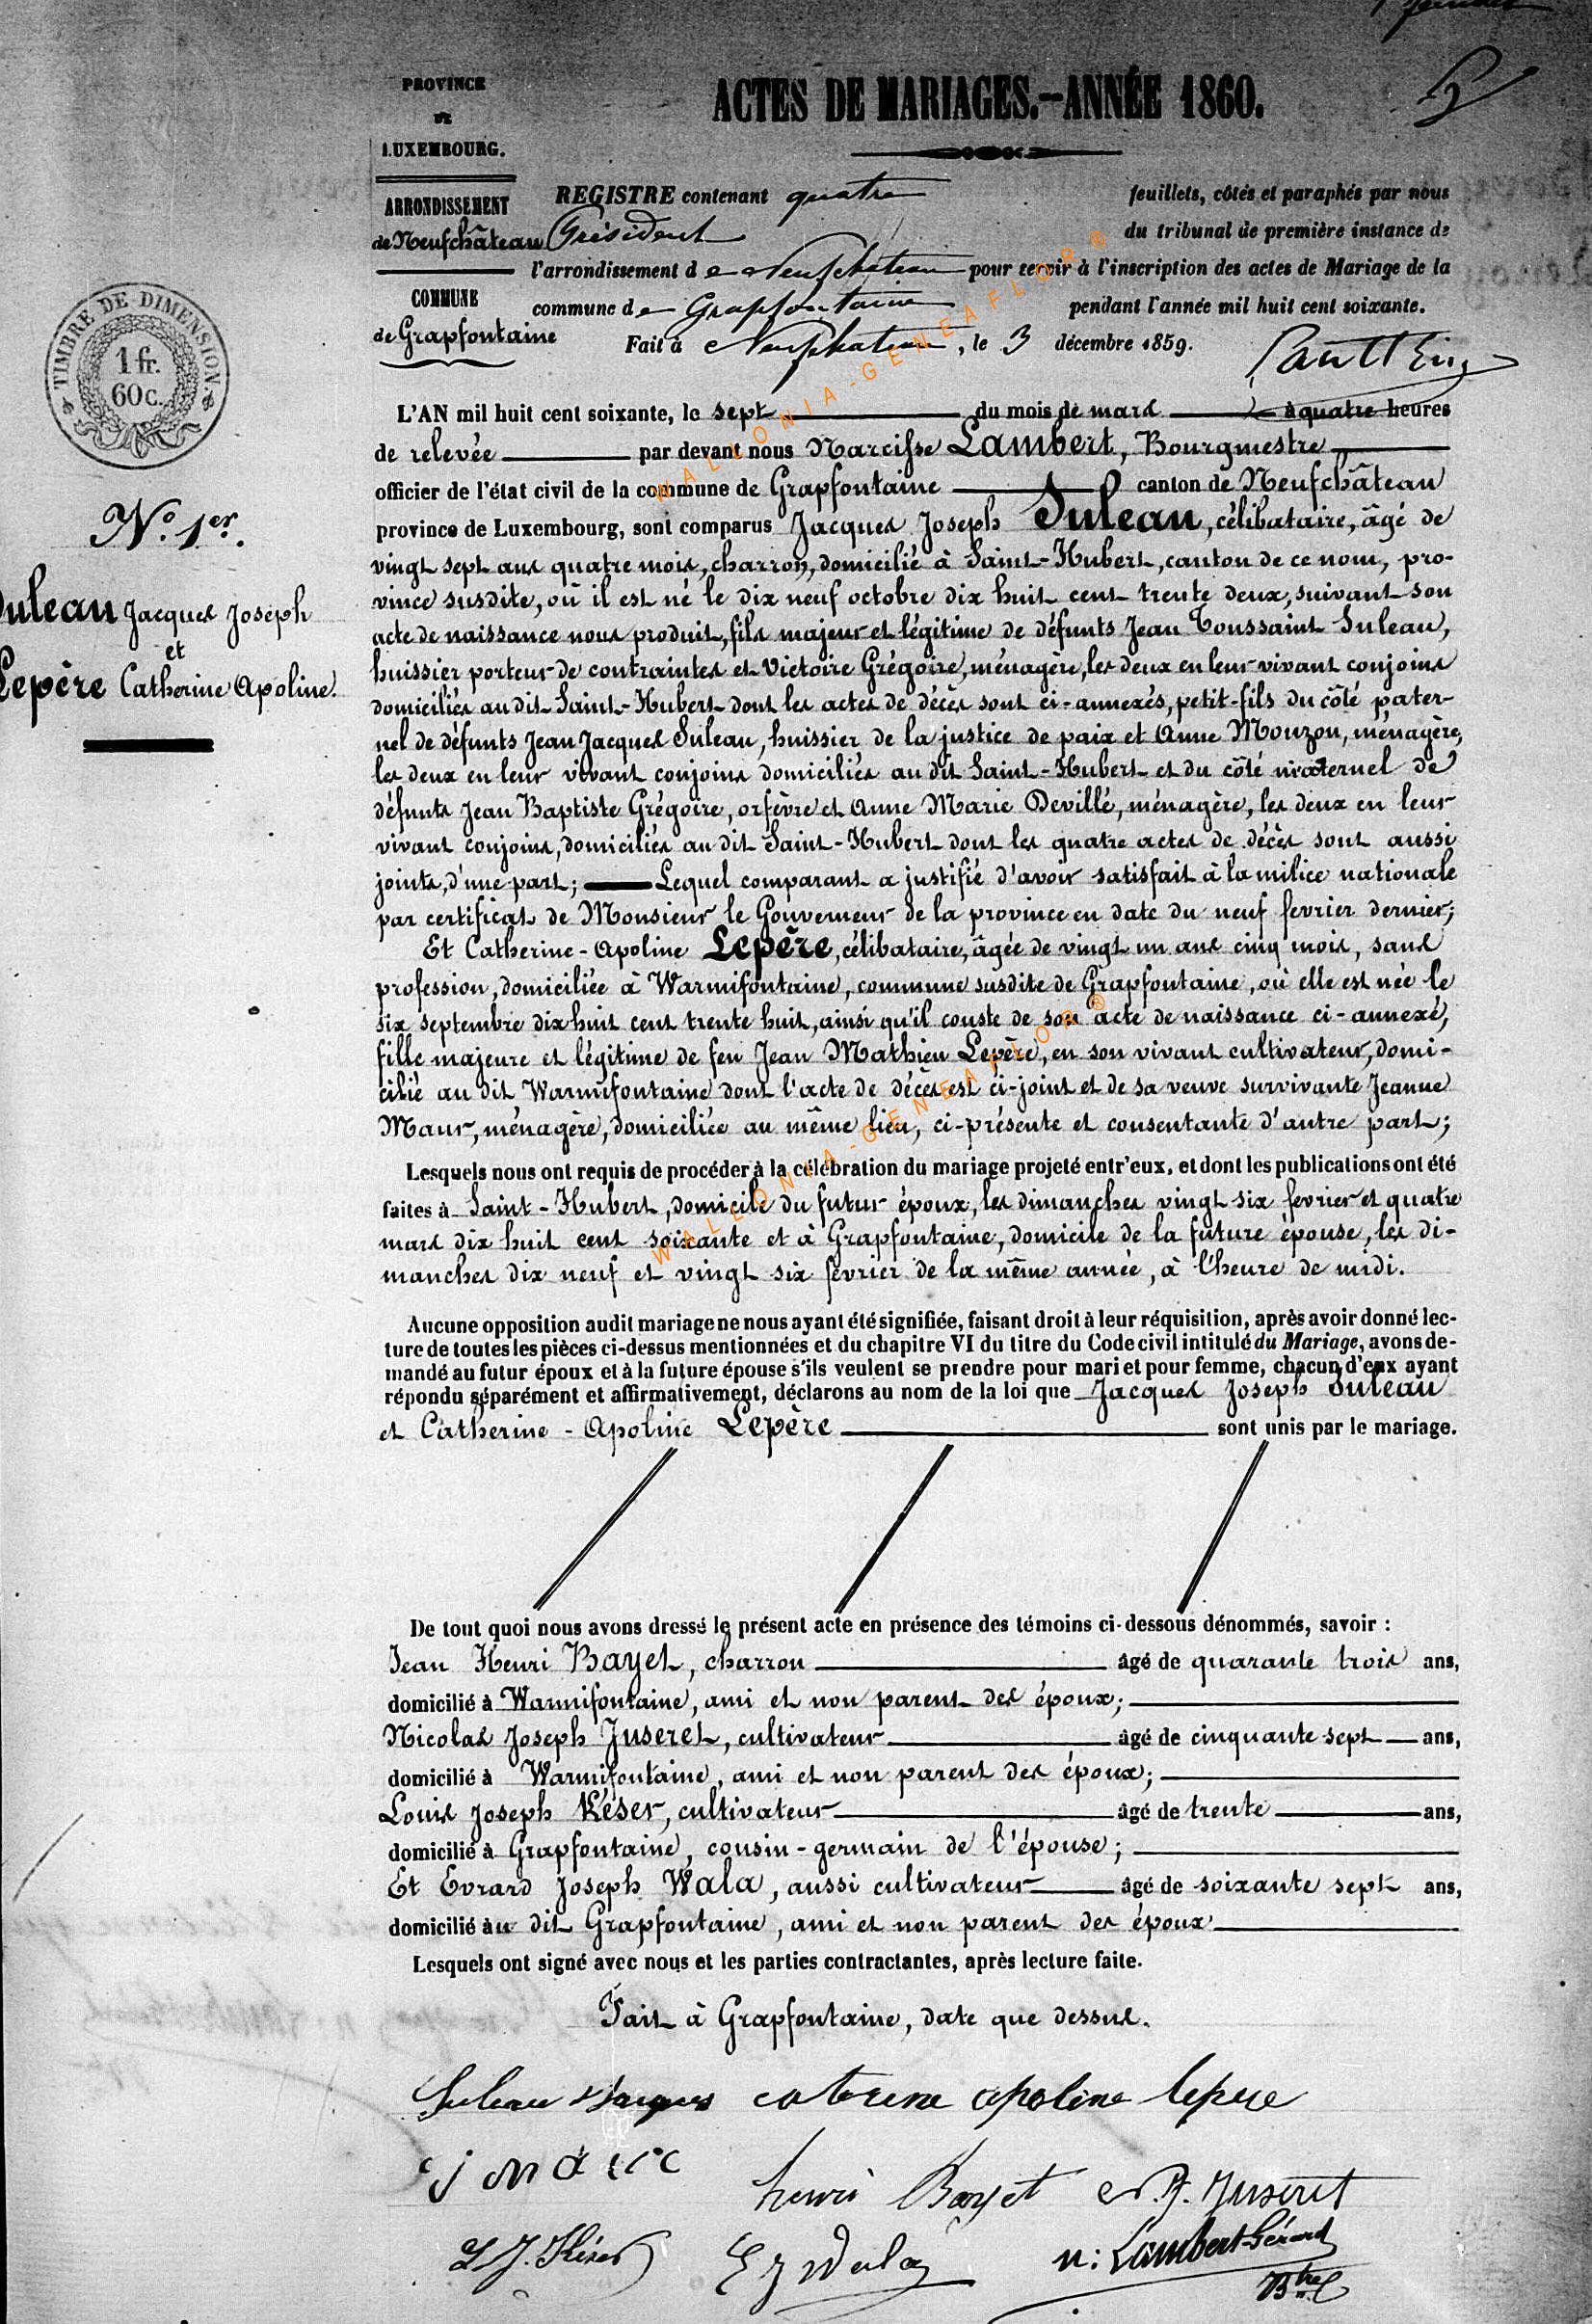 PROVINCE
DE
LUXEMBOURG.
ARRONDISSEMENT
de Neufchâteau
COMMUNE
de Grapfontaine
ACTES DE MARIAGES.—ANNÉE 1860.
REGISTRE contenant quatre feuillets, côtés et paraphés par nous
Président du tribunal de première instance de
l'arrondissement de Neufchateau pour servir à l'inscription des actes de Mariage de la
commune de Grapfontaine pendant l'année mil huit cent soixante.
Fait à Neufchateau, le 3 décembre 1859.
TIMBRE DE DIMENSION.
1 fr.
60 c.
No. 1er.
Suleau Jacques Joseph
et
Lepère Catherine Apoline.
L'AN mil huit cent soixante, le sept du mois de mars à quatre heures
de relevée par devant nous Narcisse Lambert, Bourgmestre
officier de l'état civil de la commune de Grapfontaine canton de Neufchâteau
province de Luxembourg, sont comparus Jacques Joseph Suleau, célibataire, âgé de
vingt sept ans quatre mois, charron, domicilié à Saint-Hubert, canton de ce nom, pro-
vince susdite, où il est né le dix neuf octobre dix huit cent trente deux, suivant son
acte de naissance nous produit, fils majeur et légitime de défunts Jean Toussaint Suleau,
huissier porteur de contraintes et Victoire Grégoire, ménagère, les deux en leur vivant conjoins
domiciliés au dit Saint-Hubert dont les actes de décès sont ci-annexés, petit-fils du côté pater-
nel de défunts Jean Jacques Suleau, huissier de la justice de paix et Anne Mouzon, ménagère,
les deux en leur vivant conjoins domiciliés au dit Saint-Hubert et du côté maternel de
défunts Jean Baptiste Grégoire, orfèvre et Anne Marie Devillé, ménagère, les deux en leur
vivant conjoins, domiciliés au dit Saint-Hubert dont les quatre actes de décès sont aussi
joints, d'une part; Lequel comparant a justifié d'avoir satisfait à la milice nationale
par certificat de Monsieur le Gouverneur de la province en date du neuf fevrier dernier;
Et Catherine-Apoline Lepère, célibataire, âgée de vingt un ans cinq mois, sans
profession, domiciliée à Warmifontaine, commune susdite de Grapfontaine, où elle est née le
six septembre dix huit cent trente huit, ainsi qu'il conste de son acte de naissance ci-annexé,
fille majeure et légitime de feu Jean Mathieu Lepère, en son vivant cultivateur, domi-
cilié au dit Warmifontaine dont l'acte de décès est ci-joint et de sa veuve survivante Jeanne
Maur, ménagère, domiciliée au même lieu, ci-présente et consentante d'autre part;
Lesquels nous ont requis de procéder à la célébration du mariage projeté entr'eux, et dont les publications ont été
faites à Saint-Hubert, domicile du futur époux, les dimanches vingt six fevrier et quatre
mars dix huit cent soixante et à Grapfontaine, domicile de la future épouse, les di-
manches dix neuf et vingt six fevrier de la même année, à l'heure de midi.
Aucune opposition audit mariage ne nous ayant été signifiée, faisant droit à leur réquisition, après avoir donné lec-
ture de toutes les pièces ci-dessus mentionnées et du chapitre VI du titre du Code civil intitulé du Mariage, avons de-
mandé au futur époux et à la future épouse s'ils veulent se prendre pour mari et pour femme, chacun d'eux ayant
répondu séparément et affirmativement, déclarons au nom de la loi que Jacques Joseph Suleau
et Catherine-Apoline Lepère sont unis par le mariage.
De tout quoi nous avons dressé le présent acte en présence des témoins ci-dessous dénommés, savoir :
Jean Henri Bayet, charron âgé de quarante trois ans,
domicilié à Warmifontaine, ami et non parent des époux;
Nicolas Joseph Juseret, cultivateur âgé de cinquante sept ans,
domicilié à Warmifontaine, ami et non parent des époux;
Louis Joseph Késer, cultivateur âgé de trente ans,
domicilié à Grapfontaine, cousin-germain de l'épouse;
Et Evrard Joseph Wala, aussi cultivateur âgé de soixante sept ans,
domicilié au dit Grapfontaine, ami et non parent des époux
Lesquels ont signé avec nous et les parties contractantes, après lecture faite.
Fait à Grapfontaine, date que dessus.
Suleau Jacques catrene apoline lepere
henri Bayet N. J. Juseret
L J. Késer E J Wala n: Lambert-Gérard
Btre
WALLONIA-GENEAFLOR®
WALLONIA-GENEAFLOR®